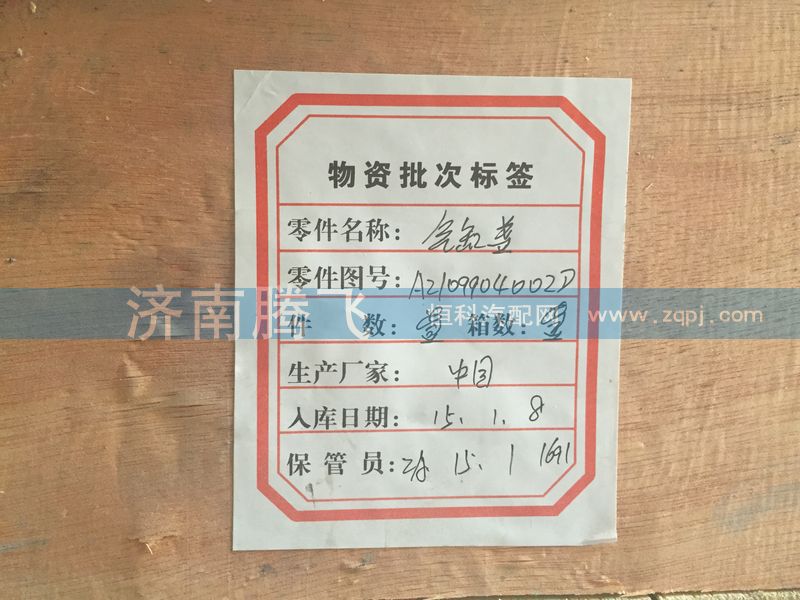 物资批次标签
零件名称: 气缸盖
零件图号: AZ1099040002D
件 数: 壹 箱数: 壹
济南腾飞 恒科汽配网 www.zqpj.com
生产厂家: 中国
入库日期: 15.1.8
保管员: 15.1